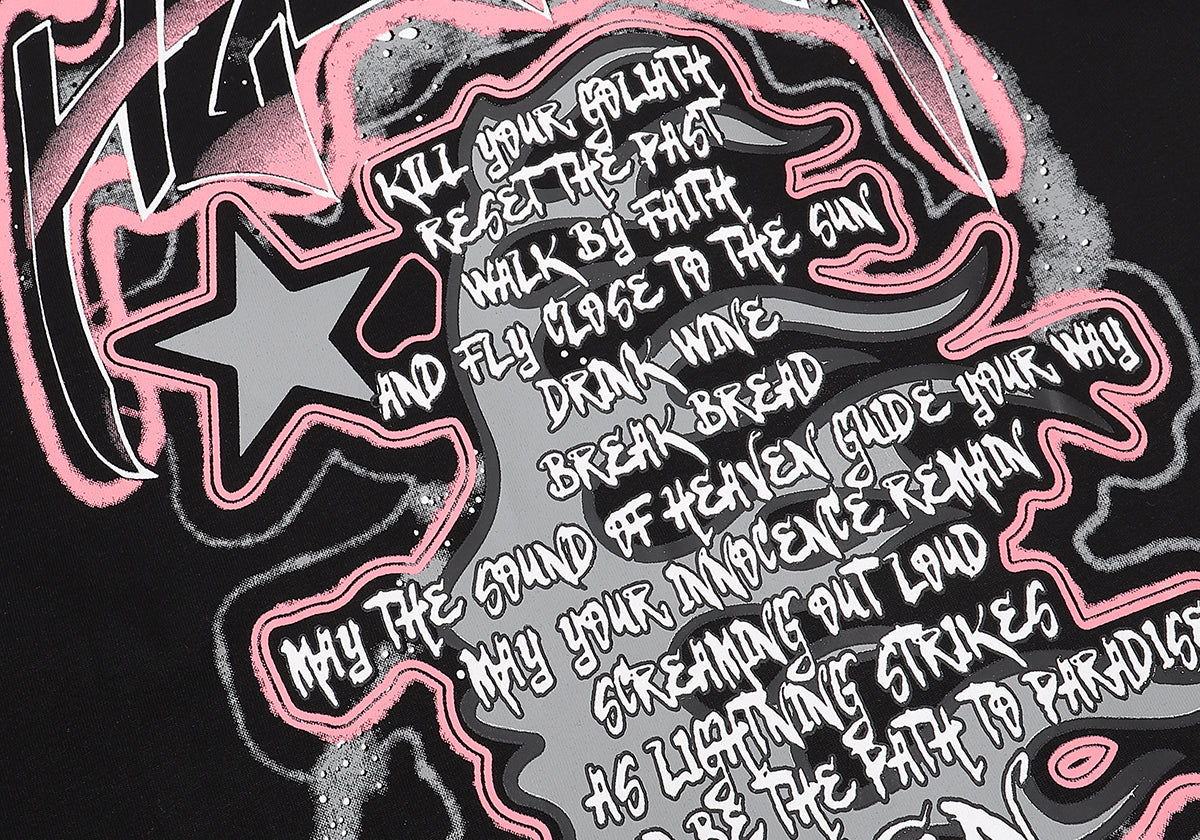 KILL YOUR GOLIATH
RESET THE PAST
WALK BY FAITH
AND FLY CLOSE TO THE SUN
DRINK WINE
BREAK BREAD
MAY THE SOUND OF HEAVEN GUIDE YOUR WAY
MAY YOUR INNOCENCE REMAIN
SCREAMING OUT LOUD
AS LIGHTNING STRIKES
BE THE PATH TO PARADISE